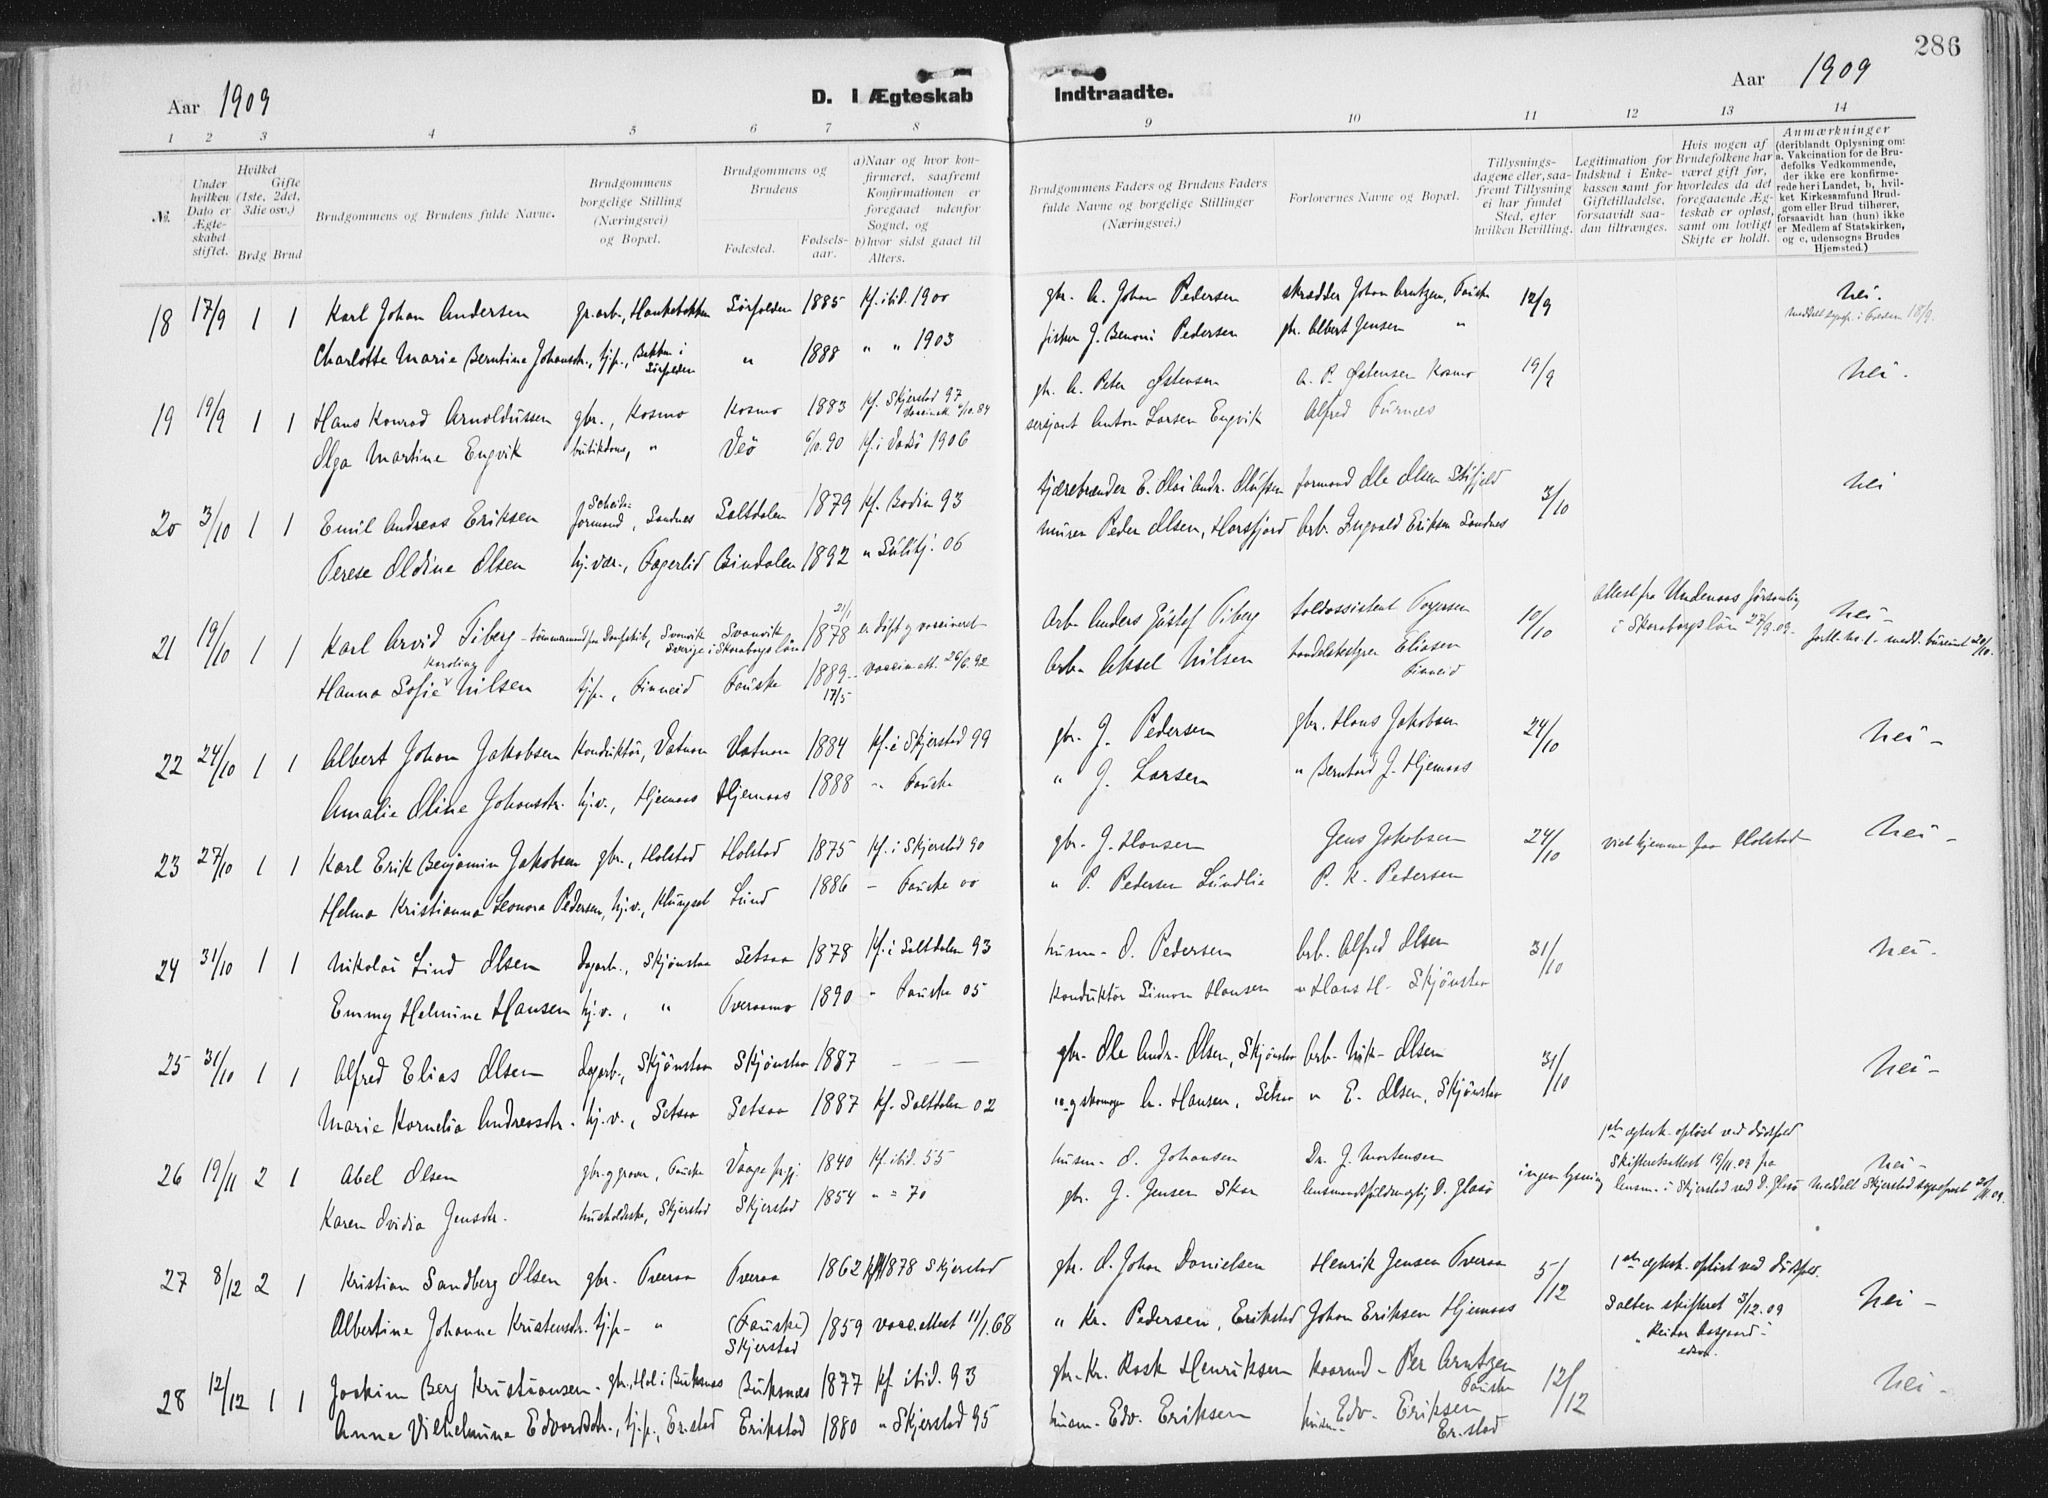 286
Aar 1909
D. I Ægteskab Indtraadte.
Aar 1909
1 2 3 4 5 6 7 8 9 10 11 12 13 14
№.
Under hvilken Dato er Ægteskabet stiftet.
Hvilket Gifte (1ste, 2det, 3die osv.)
Brdg Brud
Brudgommens og Brudens fulde Navne.
Brudgommens borgelige Stilling (Næringsvei) og Bopæl.
Brudgommens og Brudens
Fødested.
Fødselsaar.
a) Naar og hvor konfirmeret, saafremt Konfirmationen er foregaaet udenfor Sognet, og
b) hvor sidst gaaet til Alters.
Brudgommens Faders og Brudens Faders fulde Navne og borgelige Stillinger (Næringsvei.)
Forlovernes Navne og Bopæl.
Tillysningsdagene eller, saafremt Tillysning ei har fundet Sted, efter hvilken Bevilling.
Legitimation for Indskud i Enkekassen samt for Giftetilladelse, forsaavidt saadan tiltrænges.
Hvis nogen af Brudefolkene har været gift før, hvorledes da det foregaaende Ægteskab er opløst, samt om lovligt Skifte er holdt.
Anmærkninger (deriblandt Oplysning om: a. Vakcination for de Brudefolks Vedkommende, der ikke ere konfirmerede her i Landet, b, hvilket Kirkesamfund Brudgom eller Brud tilhører, forsaavidt han (hun) ikke er Medlem af Statskirken, og c, udensogns Brudes Hjemsted.)
18 17/9 1 1 Karl Johan Andersen gr.arb., Hankabakken Sørfolden 1885 kf. ibid. 1900 gbr. A. Johan Pedersen skrædder Johan Arntzen, Fauske 12/9 Nei.
Charlotte Marie Berntine Johansdr., tj.p., Bakken i Sørfolden " 1888 " " 1903 fisker J. Benoni Pedersen gbr. Albert Jensen "
19 19/9 1 1 Hans Konrad Arnoldussen gbr., Kosmo Kosmo 1883 kf. Skjerstad 97 gbr. A. Peter Østensen A. P. Østensen Kosmo 19/9 Nei.
Olga Martine Engvik butikdame, " Veö 6/10.90 kf. i Vadsö 1906 sersjant Anton Larsen Engvik Alfred Furnæs
20 3/10 1 1 Emil Andreas Eriksen formand, Sandnes Saltdalen 1879 kf. Bodin 93 tjærebrænder E. Olai Andr. Olufsen formand Ole Olsen 3/10 Nei
Terese Oldine Olsen hj.vær., Fagerlid Bindalen 1892 " Sulitj. 06 murer Peder Olsen, Harsfjord Arb. Ingvald Eriksen Sandnes
21 19/10 1 1 Karl Arvid Fiberg - Svanvik Sverige Svanvik i Skaraborgs län 21/1 1878 er döpt og vaccineret Arb. Anders Gustaf Fiberg toldassistent Torgersen 10/10 Attest fra Undenaas församling i Skaraborgs län 27/9.09. Nei
Hanna Sofie Karoline Nilsen tj.p., Finneid Fauske 1889 17/5 vaccin.att. 26/6.92 Arb. Aksel Nilsen handelsbestyrer Eliasen Finneid
22 24/10 1 1 Albert Johan Jakobsen Konduktör, Vatnan Vatnan 1884 kf. i Skjerstad 99 gbr. J. Pedersen gbr. Hans Jakobsen 24/10 Nei -
Amalie Oline Johansdr. hj.v., Hjemaas Hjemaas 1888 " Fauske " J. Larsen " Bernhard J. Hjemaas
23 27/10 1 1 Karl Erik Benjamin Jakobsen gbr., Holstad Holstad 1875 kf. i Skjerstad 90 gbr. J. Hansen Jens Jakobsen 24/10 viet hjemme paa Holstad Nei -
Helma Kristianna Leonora Pedersen, hj.v., Klungset Lund 1886 - Fauske 00 " P. Pedersen Lundlia P. K. Pedersen
24 31/10 1 1 Nikolai Lind Olsen Dagarb., Skjönstaa Setsaa 1878 kf. i Saltdalen 93 husm. O. Pedersen Arb. Alfred Olsen 31/10 Nei.
Emmy Helmine Hansen hj.v., " Tveraamo 1890 - Fauske 05 Konduktör Simon Hansen " Hans H. Skjönstaa
25 31/10 1 1 Alfred Elias Olsen Dagarb., Skjönstaa Skjönstaa 1887 — — — gbr. Ole Andr. Olsen, Skjönstaa Arb. Nik. Olsen 31/10 Nei -
Marie Kornelia Andreasdr. hj.v., Setsaa Setsaa 1887 kf. Saltdalen 02 " og skomager A. Hansen, Setsaa " E. Olsen, Skjönstaa
26 19/11 2 1 Abel Olsen gbr. og graver, Fauske 1840 kf. ibid. 55 husm. O. Johansen Dr. J. Mortensen ingen lysning 1ste ægtesk. opløst ved dödsfald Skifteretsattest 19/11.09 fra lensm. i Skjerstad ved D. Glasö Nei -
Karen Ovidia Jensdr. husholderske, Skjerstad Skjerstad 1854 " " 70 gbr. J. Jensen Skar lensmandsfuldmægtig D. Glasö
27 8/12 2 1 Kristian Sandberg Olsen gbr. Tveraa Tveraa 1862 kf. 1878 Skjerstad gbr. O. Johan Danielsen Henrik Jensen Tveraa 5/12 1ste ægtesk. opløst ved dödsfald. Salten skifteret 3/12.09 Nei -
Albertine Johanne Kristensdr. tj.p. " (Fauske) Skjerstad 1859 vacc.attest 11/1.68 " Kr. Pedersen, Erikstad Johan Eriksen Hjemaas
28 12/12 1 1 Joakim Berg Kristiansen gbr., Hol i Buksnæs Buksnæs 1877 kf. ibid. 93 gbr. Kr. Rask Henriksen Per Arntzen Fauske 12/12 Nei -
Anna Vilhelmine Edvardsdr., tj.p., Er.stad Erikstad 1880 " Skjerstad 95 husm. Edv. Eriksen husm. Edv. Eriksen Er.stad